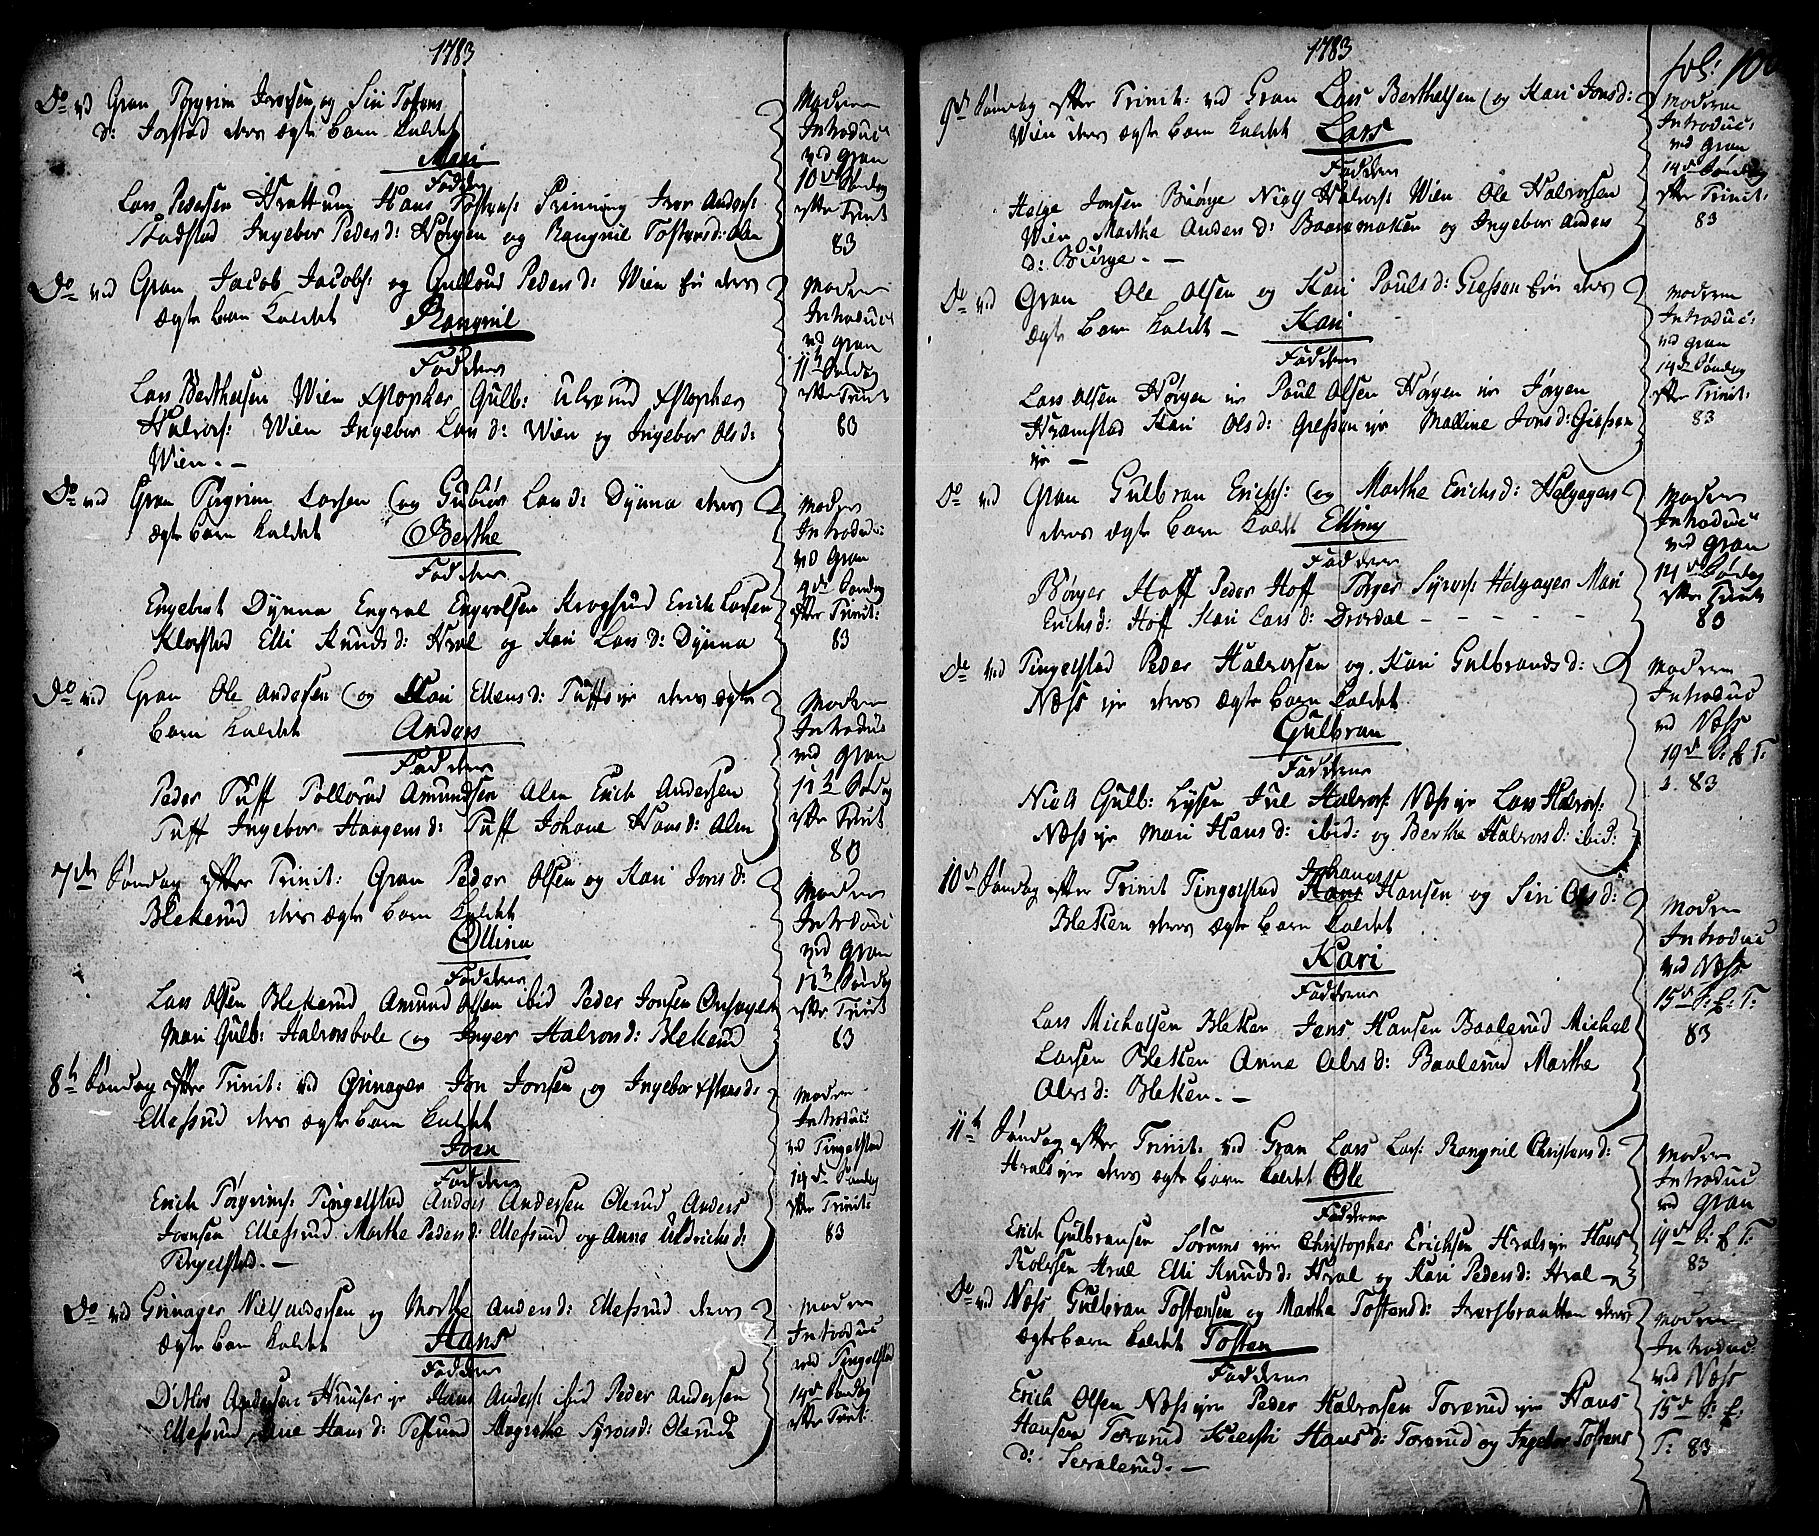 1783
Do ved Gran Torgrim Iversen og Siri Tostens
d: Jorstad deres ægte barn kaldet
Mari
Faddere
Lars Pedersen Hvattum Hans Tostens: Prinning Iver Anders:
Stadstad Ingebor Peders d: Horgen og Rangnil Tostens d: Alm
Moderen
Introduc:
ved Gran
10de Søndag
efter Trinit
83
Do ved Gran Jacob Jacobs: og Gulloug Peders d: Wien Eie deres
ægte barn kaldet Rangnil
Faddere
Lars Berthelsen Wien Christopher Gulb: Ulvund Christopher
Halvors: Wien Ingebor Lars d: Wien og Ingebor Ols d:
Wien. –
Moderen
Introduc
ved Gran
11te Søndag
efter Trinit
83
Do ved Gran Torgrim Larsen og Gubiør Lars d: Dynna deres
ægte barn kaldet Berthe
Faddere
Engebret Dynna Engval Engvolsen Krogsrud Erich Larsen
Klorstad Elli Knuds d: Hval og Kari Lars d: Dynna
Moderen
Introduc:
ved Gran
9de Søndag
efter Trinit:
83
Do ved Gran Ole Andersen og Kari Ellens d: Tuffs eje deres ægte
barn kaldet Anders
Faddere
Peder Tuff Tollerud Amundsen Alm Erich Andersen
Tuff Ingebor Haagens d: Tuff Johane Hans d: Alm
Moderen
Introduc
ved Gran
12te Søndag
efter Trinit
83
7de Søndag efter Trinit: Gran Peder Olsen og Kari Jons d:
Blekerud deres ægte barn kaldet
Ollina
Faddere
Lars Olsen Blekerud Amund Olsen ibid Peder Jonsen
Mari Gulb: Halvorsbole og Inger Halvors d: Blekerud
Moderen
Introduc
ved Gran
Søndag
efter Trinit
83
8de Søndag efter Trinit: ved Grinager Jon Jonsen og Ingebor Estens d:
Ellefsrud deres ægte barn kaldet
Joen
Faddere
Erich Torgrims: Tingelstad Anders Andersen Olerud Anders
Joensen Ellefsrud Marthe Peders d: Ellefsrud og Anne Uldrichs d:
Tingelstad. –
Moderen
Introduc:
ved Tingelstad
14de Søndag
efter Trinit:
83
Do ved Grinager Niels Andersen og Marthe Anders d: Ellefsrud deres
ægte barn kaldet Hans
Faddere
Ditlev Andersen Huuser eje Hans Anders: ibid Peder Andersen
Ellefsrud Ane Hans d: Tesrund Margrethe Syvers d: Olerud
Moderen
Introduc
ved Tingelstad
14de Søndag
efter Trinit:
1783
fol: 100
9de Søndag efter Trinit: ved Gran Lars Berthelsen og Kari Jons d:
Wien deres ægte barn kaldet Lars
Faddere
Helge Jonsen Biørge Niels Halvors: Wien Ole Halvorsen
Wien Marthe Anders d: Baaremoken og Ingebor Anders
d: Biørge. –
Moderen
Introduc:
ved Gran
14de Søndag
efter Trinit:
83
Do ved Gran Ole Olsen og Kari Pouls d: Giefsen Eie deres
ægte barn kaldet – Kari
Faddere
Lars Olsen Hørgen eje Poul Olsen Hørgen eje Jørgen
Hramstad Kari Ols d: Giefsen eje Malline Jons d: Giefsen
eje –
Moderen
Introduc:
ved Gran
14de Søndag
efter Trinit:
83
Do ved Gran Gulbran Erichs: og Marthe Erichs d: Helgagers
deres ægte barn kaldt Elling
Faddere
Børger Hoff Peder Hoff Torger Syvers: Helgager Mari
Erichs d: Hoff Kari Lars d: Dvordal – – – –
Moderen
Introduc:
ved Gran
14de Søndag
efter Trinit
83
Do ved Tingelstad Peder Halvorsen og Kari Gulbrands d:
Næss eje deres ægte barn kaldet
Gulbran
Faddere
Niels Gulb: Lyssen Juel Halvors: Næss eje Lars Halvors:
Næss eje Mari Hans d: ibid: og Berthe Halvors d: ibid:
Moderen
Introduc
ved Næss
19de S: E: T:
83
10de Søndag efter Trinit Tingelstad Johannes Hansen og Siri Ols d:
Bleken deres ægte barn kaldet
Kari
Fadderne
Lars Michelsen Bleken Jens Hansen Baalerud Michel
Larsen Bleken Anne Alvs d: Baalerud Marthe
Alvs d: Bleken. –
Moderen
Introduc
ved Næss
15de S: E: T:
83
11te Søndag efter Trinit. ved Gran Lars Lars: Rangnil Christens d:
Hvals eje deres ægte barn kaldet Ole
Fadderne
Erich Gulbransen Sørums eje Christopher Erichsen Hvals eje Hans
Rolsen Hval Elli Knuds d: Hval og Kari Peders d: Hval –
Moderen
Introduc
ved Gran
19de S: E: T:
83
Do ved Næss Gulbran Tostensen og Marthe Tostens d: Iversbraatten deres
ægte barn kaldet Tosten
Faddere
Erich Olsen Næss eje Peder Halvorsen Toverud eje Hans
Hansen Toverud Kiersti Hans d: Toverud og Ingebor Tostens
d: Tevalerud. –
Moderen
Introduc:
ved Næss
15de S: E:
T: 83